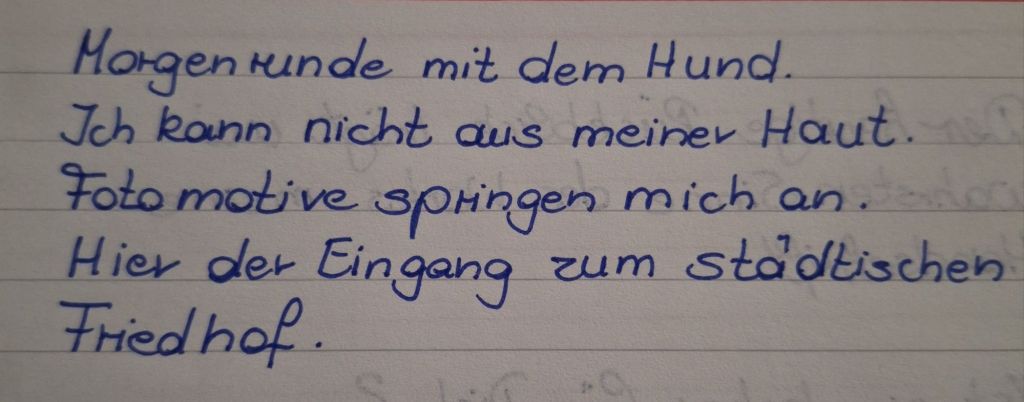 Morgenrunde mit dem Hund.
Ich kann nicht aus meiner Haut.
Fotomotive springen mich an.
Hier der Eingang zum städtischen
Friedhof.